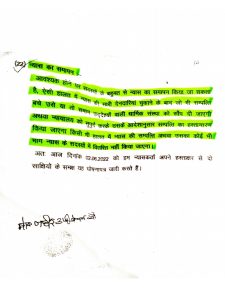 (22) न्यास का समापन
आवश्यक होने पर सदस्यों के बहुमत से न्यास का समापन किया जा सकता
है, ऐसी हालत में न्यास की सारी देनदारियां चुकाने के बाद जो भी सम्पत्ति
बचे उसे या तो समान उद्देश्यों वाली धार्मिक संस्था को सौंप दी जाएगी
अथवा न्यायालय को सुपुर्द करके उसके आदेशानुसार सम्पत्ति का हस्तान्तरण
किया जाएगा किसी भी हालत में न्यास की सम्पत्ति अथवा उसका कोई भी
भाग न्यास के सदस्यों में वितरित नहीं किया जाएगा।
अतः आज दिनांक 02.06.2022 को हम न्यासकर्ता अपने हस्ताक्षर से दो
साक्षियों के समक्ष यह घोषणापत्र जारी करते हैं।